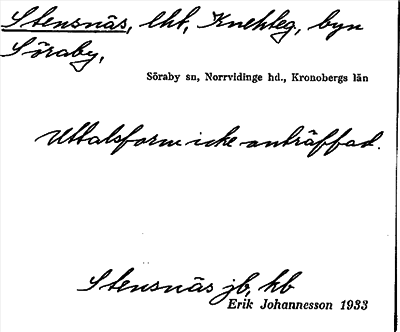 Stensnäs, lht, Knektlg, byn
Söraby,
Söraby sn, Norrvidinge hd., Kronobergs län
Uttalsform icke anträffad.
Stensnäs jb, kb
Erik Johannesson 1933